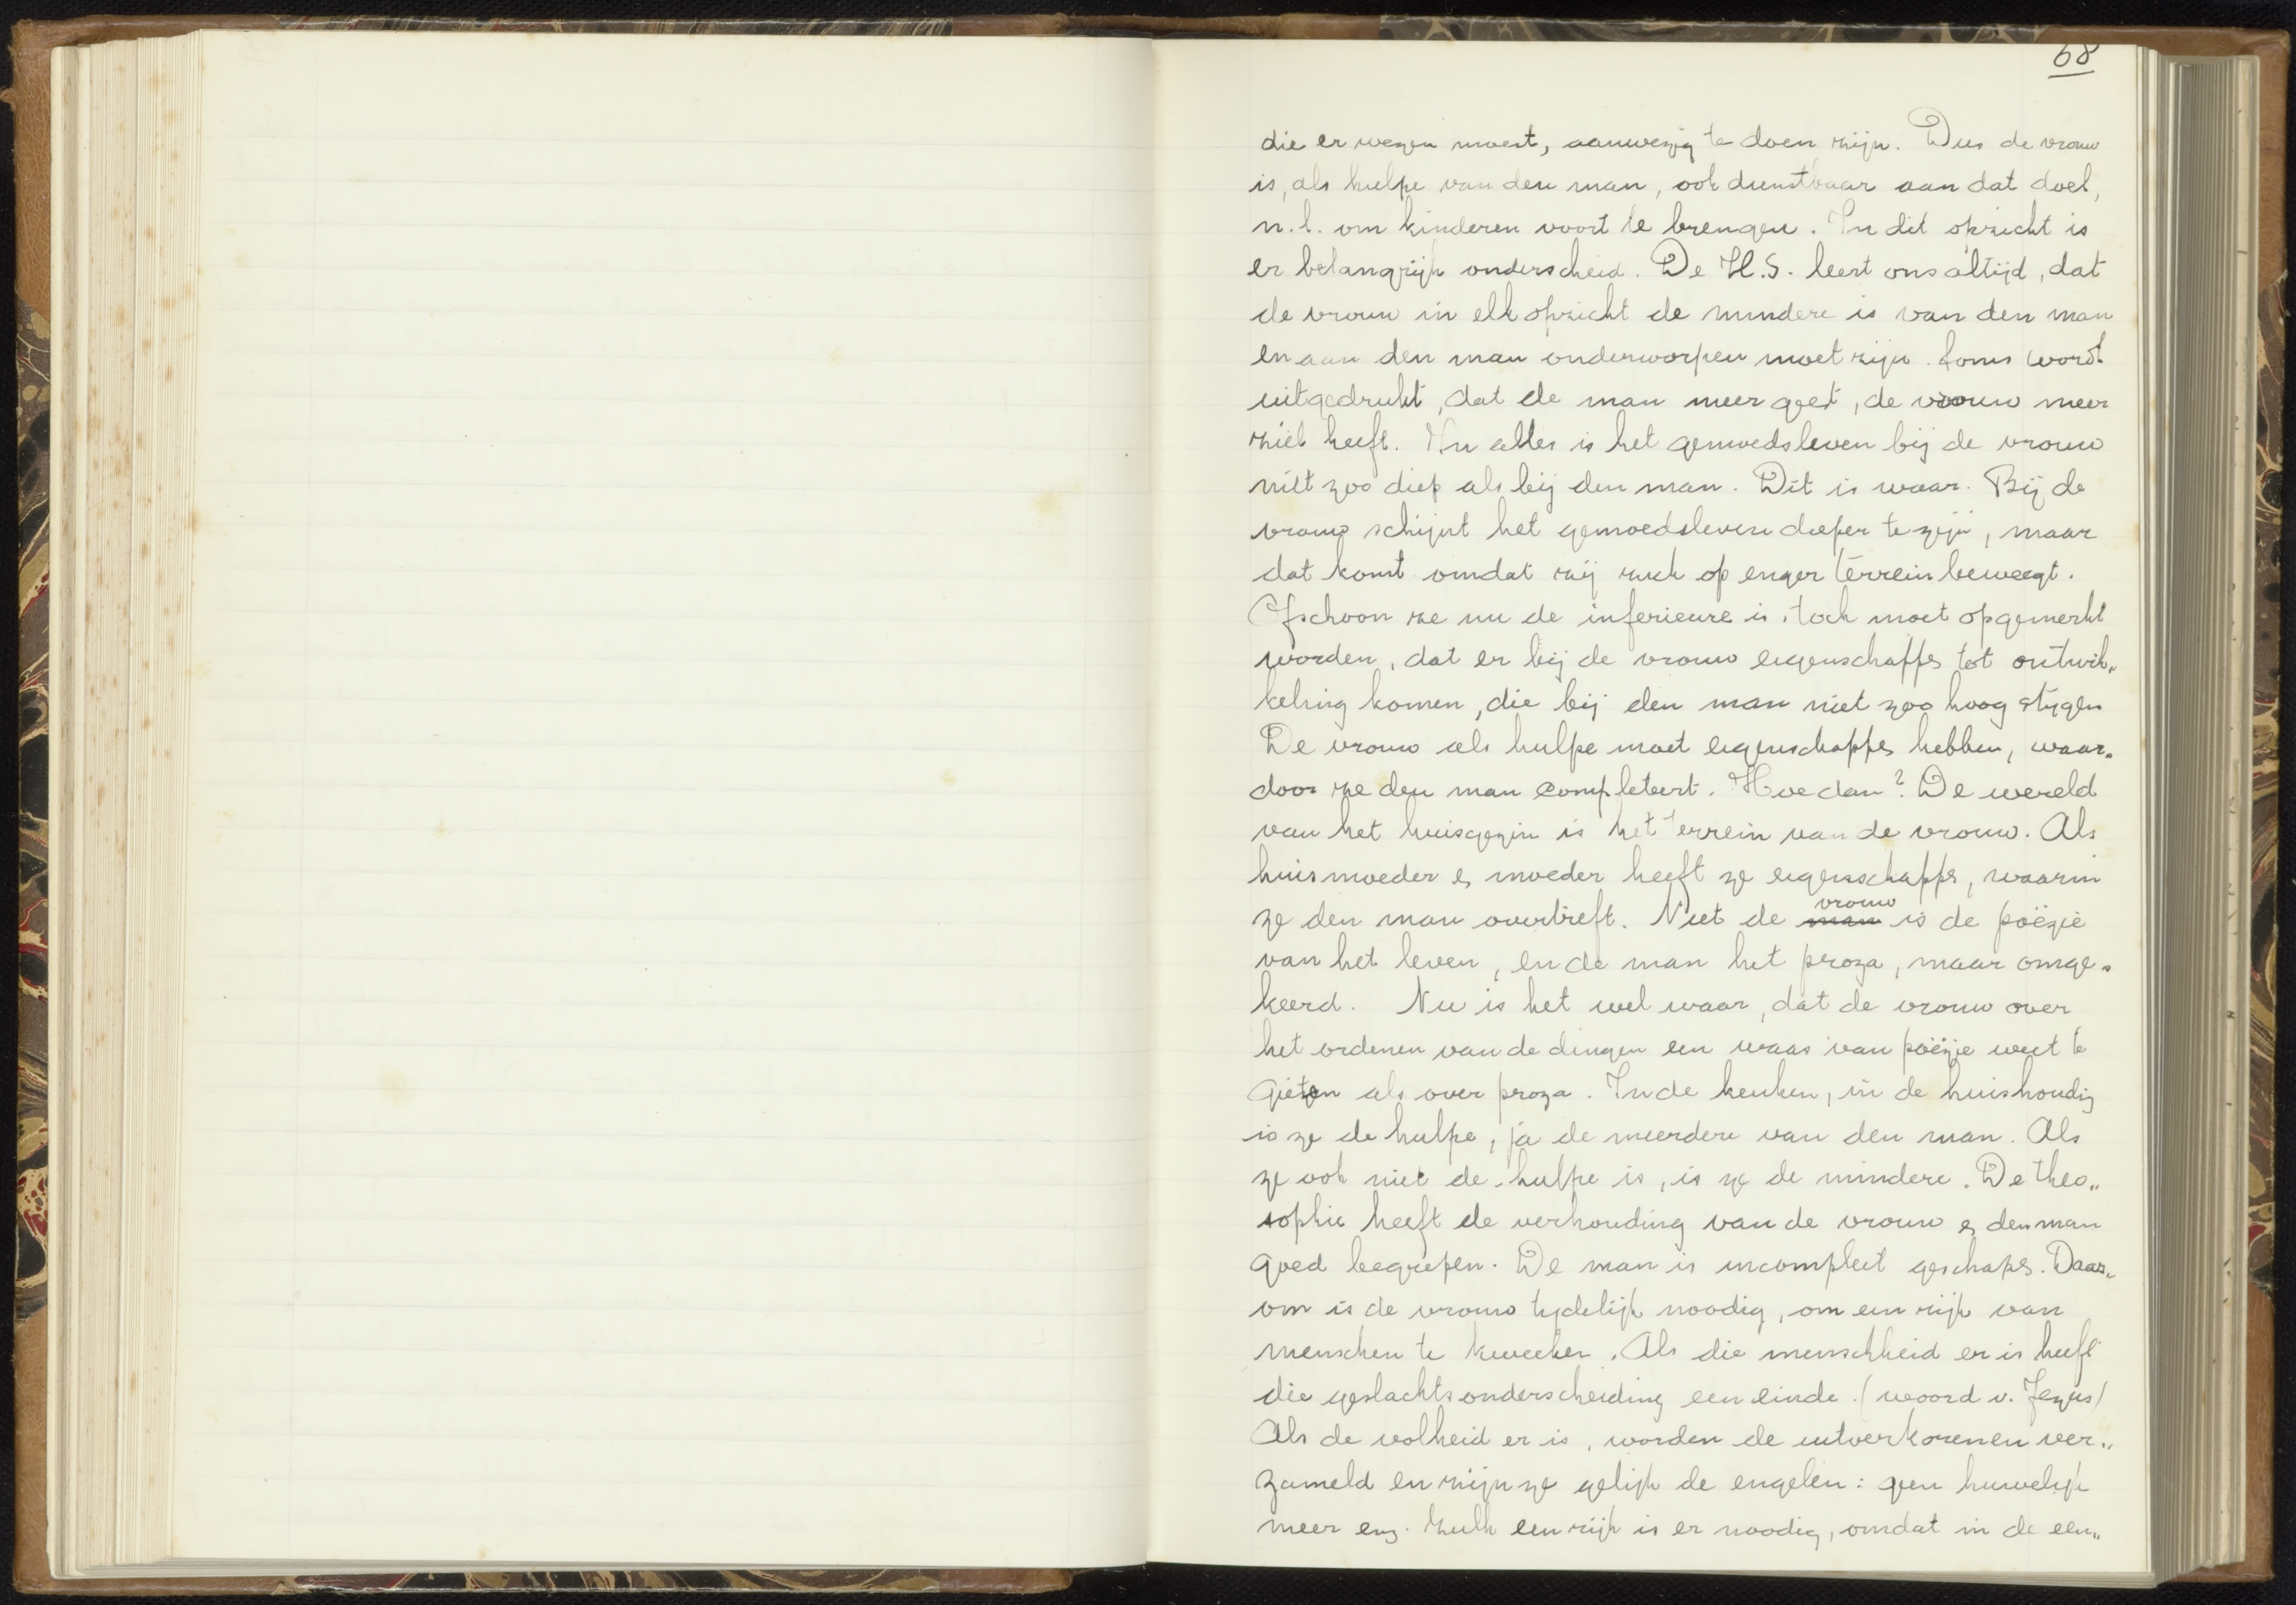 68
die er wezen moest, aanwezig te doen zijn. Dus de vrouw
is, als hulpe van den man, ook dienstbaar aan dat doel,
n.l. om kinderen voort te brengen. In dit opzicht is
er belangrijk onderscheid. De H.S. leert ons altijd, dat
de vrouw in elk opzicht de mindere is van den man
en aan den man onderworpen moet zijn. Soms wordt
uitgedrukt, dat de man meer geest, de vrouw meer
ziel heeft. In alles is het gemoedsleven bij de vrouw
niet zoo diep als bij den man. Dit is waar. Bij de
vrouw schijnt het gemoedsleven dieper te zijn, maar
dat komt omdat zij zich op enger terrein beweegt.
Ofschoon ze nu de inferieure is, toch moet opgemerkt
worden, dat er bij de vrouw eigenschappen tot ontwik„
keling komen, die bij den man niet zoo hoog stijgen
De vrouw als hulpe moet eigenschappen hebben, waar„
door ze den man completeert. Hoe dan? De wereld
van het huisgezin is het terrein van de vrouw. Als
huismoeder en moeder heeft ze eigenschappen, waarin
ze den man overtreft. Niet de man vrouw is de poëzie
van het leven, en de man het proza, maar omge„
keerd. Nu is het wel waar, dat de vrouw over
het ordenen van de dingen een waas van poëzie weet te
gieten als over proza. In de keuken, in de huishouding
is ze de hulpe, ja de meerdere van den man. Als
ze ook niet de hulpe is, is ze de mindere. De theo„
sophie heeft de verhouding van de vrouw en den man
goed begrepen. De man is incompleet geschapen. Daar„
om is de vrouw tijdelijk noodig, om een rijk van
menschen te kweeken. Als die menschheid er is heeft
die geslachtsonderscheiding een einde. (woord v. Jezus)
Als de volheid er is, worden de uitverkorenen ver„
zameld en zijn ze gelijk de engelen: geen huwelijk
meer enz. Zulk een rijk is er noodig, omdat in de een„